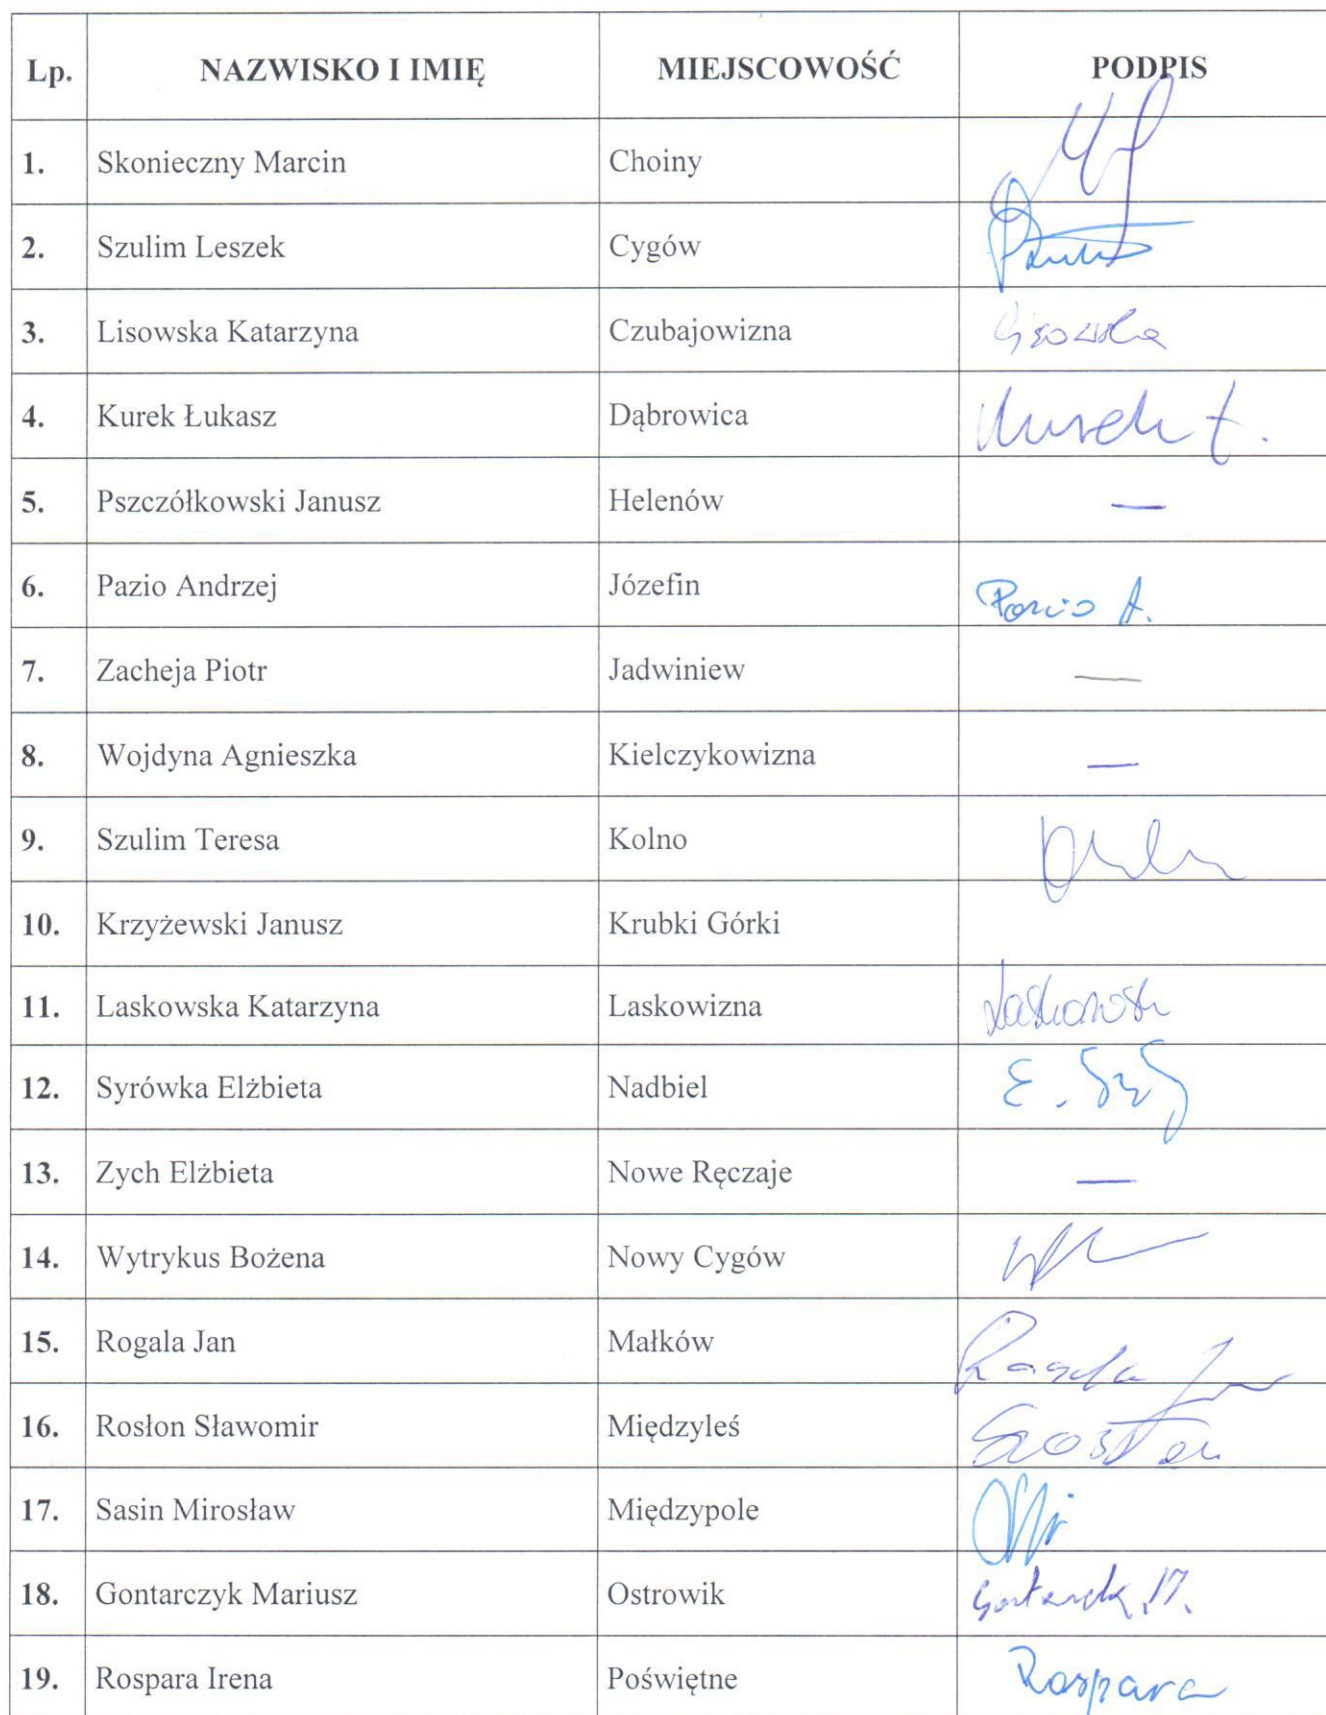 Lp. NAZWISKO I IMIĘ MIEJSCOWOŚĆ PODPIS
1. Skonieczny Marcin Choiny
2. Szulim Leszek Cygów
3. Lisowska Katarzyna Czubajowizna Lisowska
4. Kurek Łukasz Dąbrowica Kurek Ł.
5. Pszczółkowski Janusz Helenów —
6. Pazio Andrzej Józefin Pazio A.
7. Zacheja Piotr Jadwiniew —
8. Wojdyna Agnieszka Kielczykowizna —
9. Szulim Teresa Kolno
10. Krzyżewski Janusz Krubki Górki
11. Laskowska Katarzyna Laskowizna
12. Syrówka Elżbieta Nadbiel
13. Zych Elżbieta Nowe Ręczaje —
14. Wytrykus Bożena Nowy Cygów
15. Rogala Jan Małków
16. Rosłon Sławomir Międzyleś
17. Sasin Mirosław Międzypole
18. Gontarczyk Mariusz Ostrowik
19. Rospara Irena Poświętne Rospara